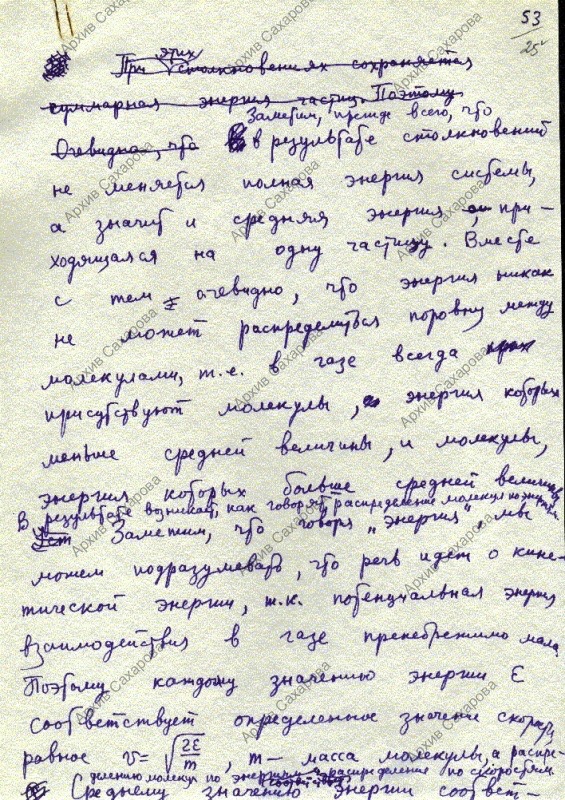 53
25
При этих столкновениях сохраняется
суммарная энергия частиц. Поэтому
Заметим, прежде всего, что
Очевидно, что в результате столкновений
не меняется полная энергия системы,
а значит и средняя энергия, при-
ходящаяся на одну частицу. Вместе
с тем очевидно, что энергия никак
не может распределиться поровну между
молекулами, т.е. в газе всегда
присутствуют молекулы, энергия которых
меньше средней величины, и молекулы,
энергия которых больше средней величины
В результате возникает, как говорят, распределение молекул по энергиям
Заметим, что говоря „энергия", мы
можем подразумевать, что речь идет о кине-
тической энергии, т.к. потенциальная энергия
взаимодействия в газе пренебрежимо мала.
Поэтому каждому значению энергии ε
соответствует определенное значение скорости,
равное v = √(2ε/m), m – масса молекулы, а распре-
делению молекул по энергиям распределение по скоростям.
Среднему значению энергии соответ-
Архив Сахарова